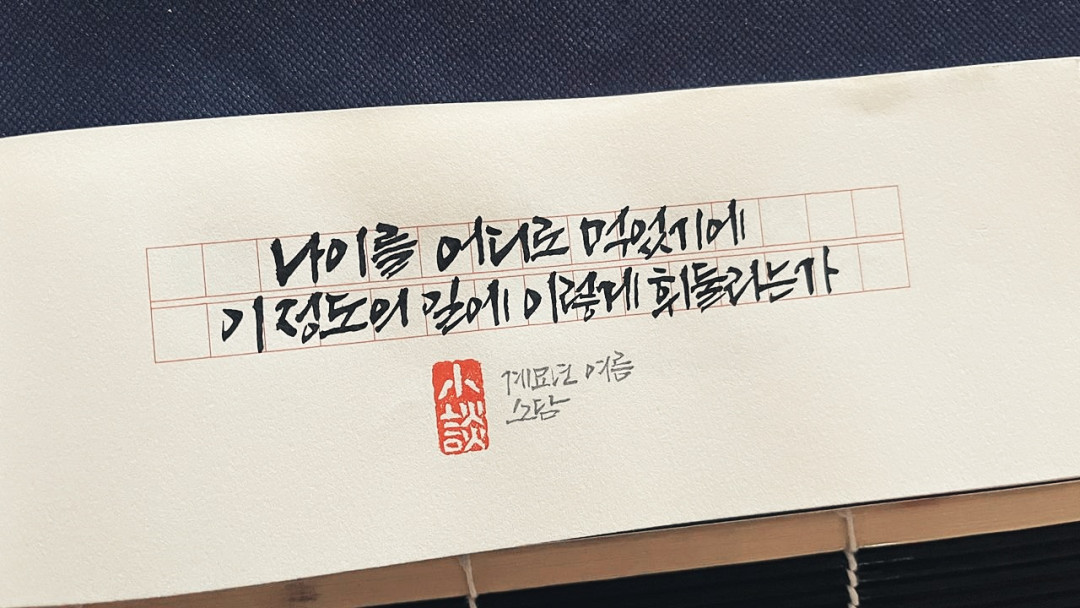 나이를 어디로 먹었기에
기 정도의 일에 이렇게 휘둘리는가
小談
계묘년 여름
소담